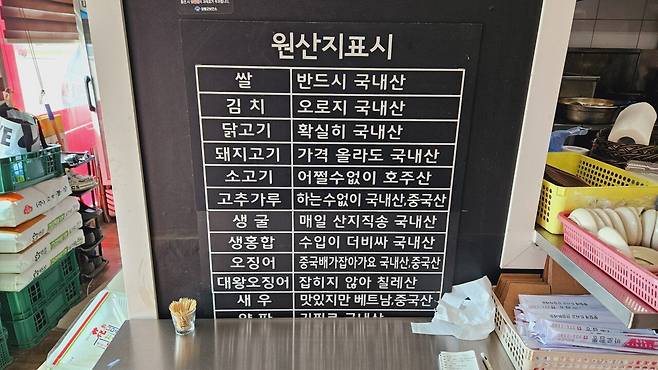 원산지표시
쌀 반드시 국내산
김치 오로지 국내산
닭고기 확실히 국내산
돼지고기 가격 올라도 국내산
소고기 어쩔수없이 호주산
고추가루 하는수없이 국내산,중국산
생굴 매일 산지직송 국내산
생홍합 수입이 더비싸 국내산
오징어 중국배가잡아가요 국내산,중국산
대왕오징어 잡히지 않아 칠레산
새우 맛있지만 베트남,중국산
국내산